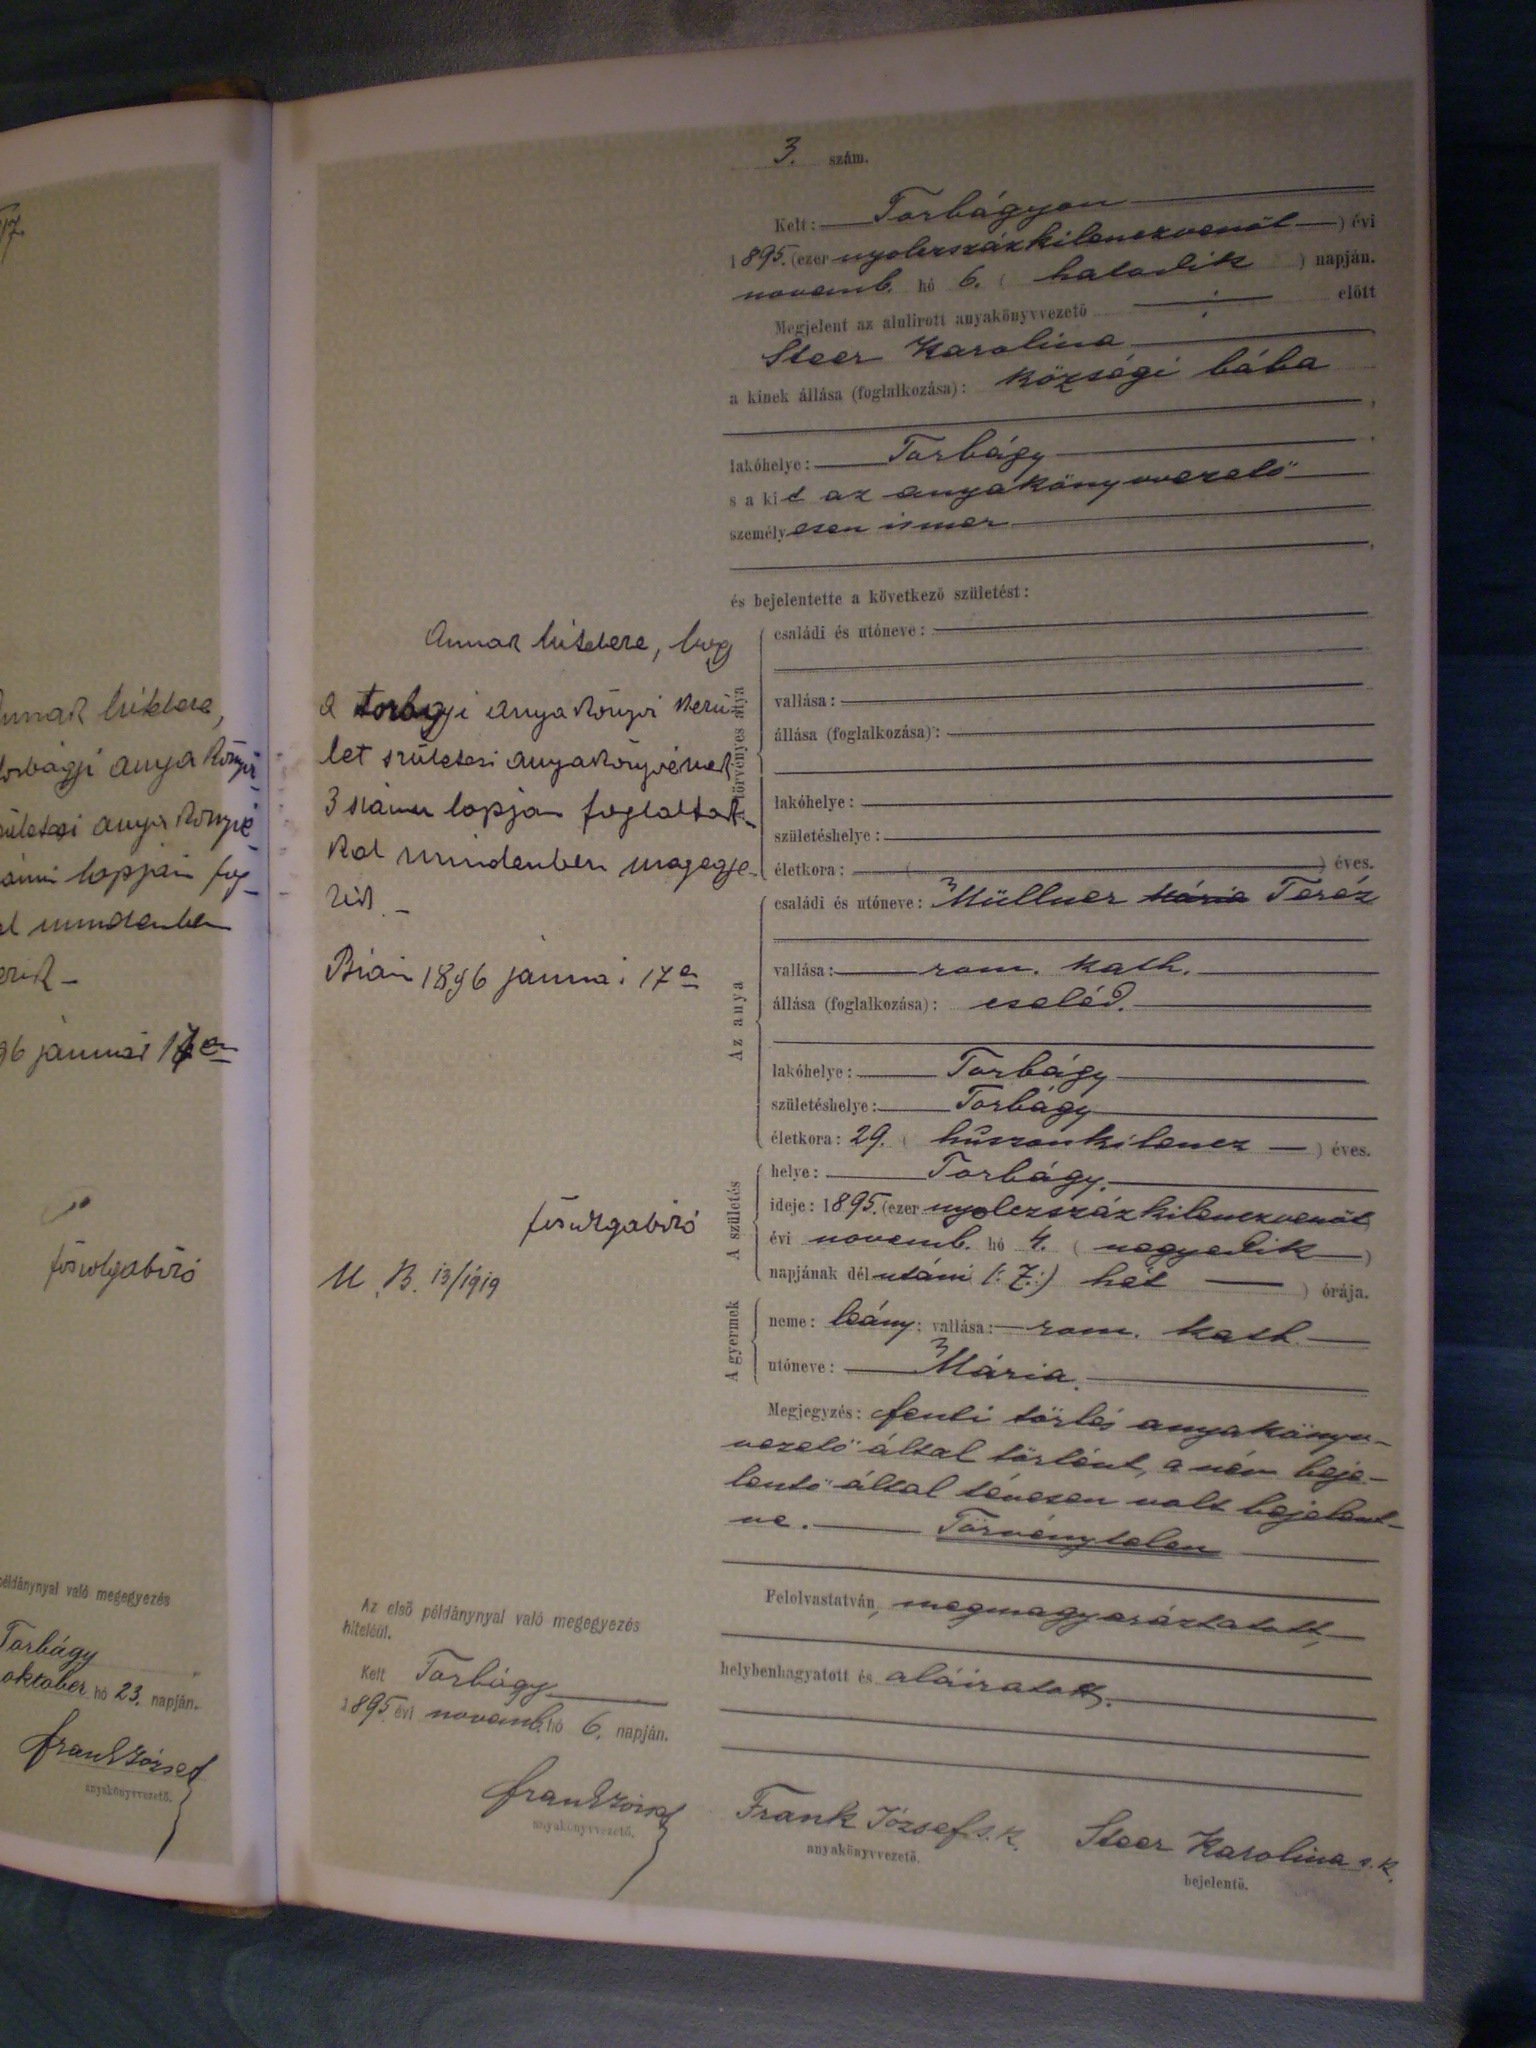 17.
Annak hitelere,
torbágyi anyakönyvi
születesi anyakönyvé-
számú lapján fog-
al mindenben
96 januái 17én
főszolgabíró
példánynyal való megegyezés
Torbágy
oktober hó 23. napján.
Frank József
anyakönyvvezető.
3. szám.
Kelt: Torbágyon
1895. (ezer nyolczszázkilenczvenöt) évi
novemb. hó 6. (hatodik) napján.
Megjelent az alulirott anyakönyvvezető előtt
Steer Karolina
a kinek állása (foglalkozása): községi bába
lakóhelye: Torbágy
s a kit az anyakönyvvezető
személyesen ismer
és bejelentette a következő születést:
A törvényes atya
családi és utóneve:
vallása:
állása (foglalkozása):
lakóhelye:
születéshelye:
életkora: ( ) éves.
Az anya
családi és utóneve: Müllner Mária Teréz
vallása: rom. kath.
állása (foglalkozása): cseléd.
lakóhelye: Torbágy
születéshelye: Torbágy
életkora: 29. (huszonkilencz) éves.
A születés
helye: Torbágy.
ideje: 1895. (ezer nyolczszázkilenczvenöt
évi novemb. hó 4. (negyedik)
napjának dél utáni (:7.:) hét ) órája.
A gyermek
neme: leány; vallása: rom. kath
utóneve: Mária.
Megjegyzés: fenti törlés anyakönyv-
vezető által történt, a név beje-
lentő által tévesen volt bejelent-
ve. Törvénytelen
Felolvastatván, megmagyaráztatott,
helybenhagyatott és aláiratott.
Frank József s. k.
anyakönyvvezető.
Steer Karolina s. k.
bejelentő.
Annak hitelere, hogy
a torbágyi anyakönyvi kerü-
let születesi anyakönyvének
3 számu lapján foglaltak-
kal mindenben megegye-
zik.
Bián 1896 januái 17én
főszolgabíró
U. B. 13/1919
Az első példánynyal való megegyezés
hiteléül.
Kelt Torbágy
1895 évi novemb. hó 6. napján.
Frank József
anyakönyvvezető.